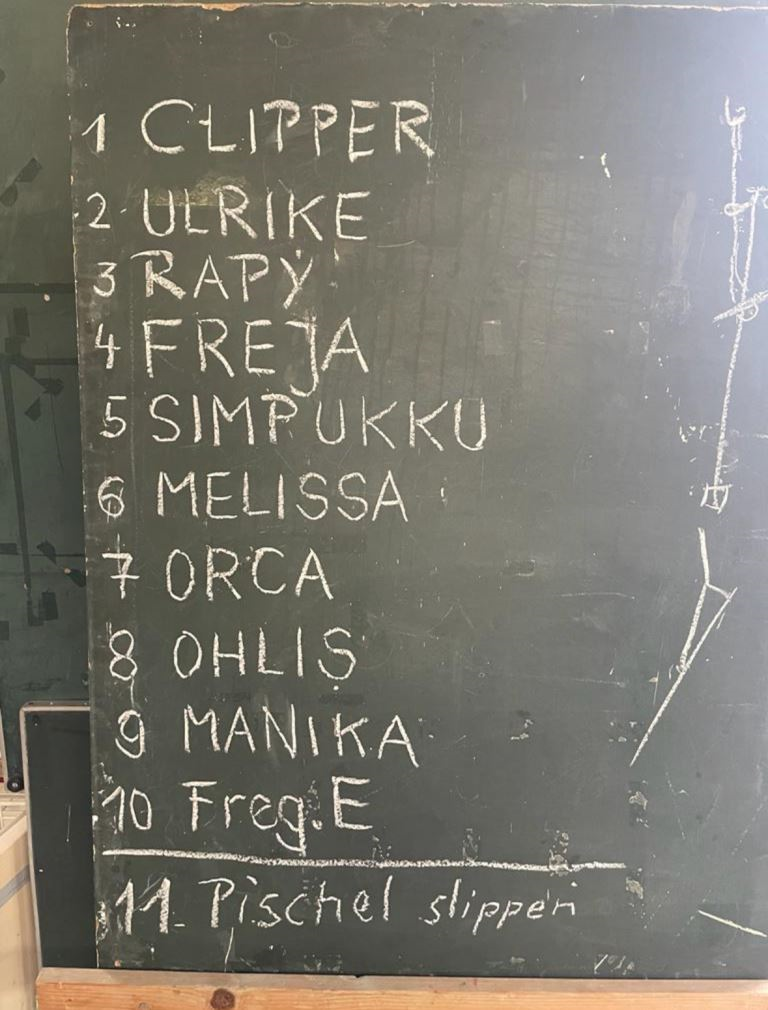 1 CLIPPER
2 ULRIKE
3 RAPY
4 FREJA
5 SIMPUKKU
6 MELISSA
7 ORCA
8 OHLIS
9 MANIKA
10 Freg.E
11. Pischel slippen